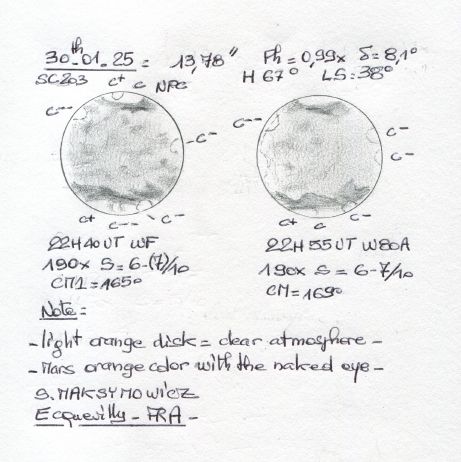 30th.01.25 = 13,78" Ph = 0,99x δ = 8,1°
SC203 H 67° LS: 38°
C+ C NPC
C--
C--
-C-
C-
C-
C+ C-- C-
C+ C C-
22H40UT WF 22H55UT W80A
190x S = 6-(7)/10 190x S = 6-7/10
CM1 = 165° CM = 169°
Note:
-light orange disk = clear atmosphere-
-Mars orange color with the naked eye-
S. MAKSYMOWICZ
Ecquevilly - FRA -